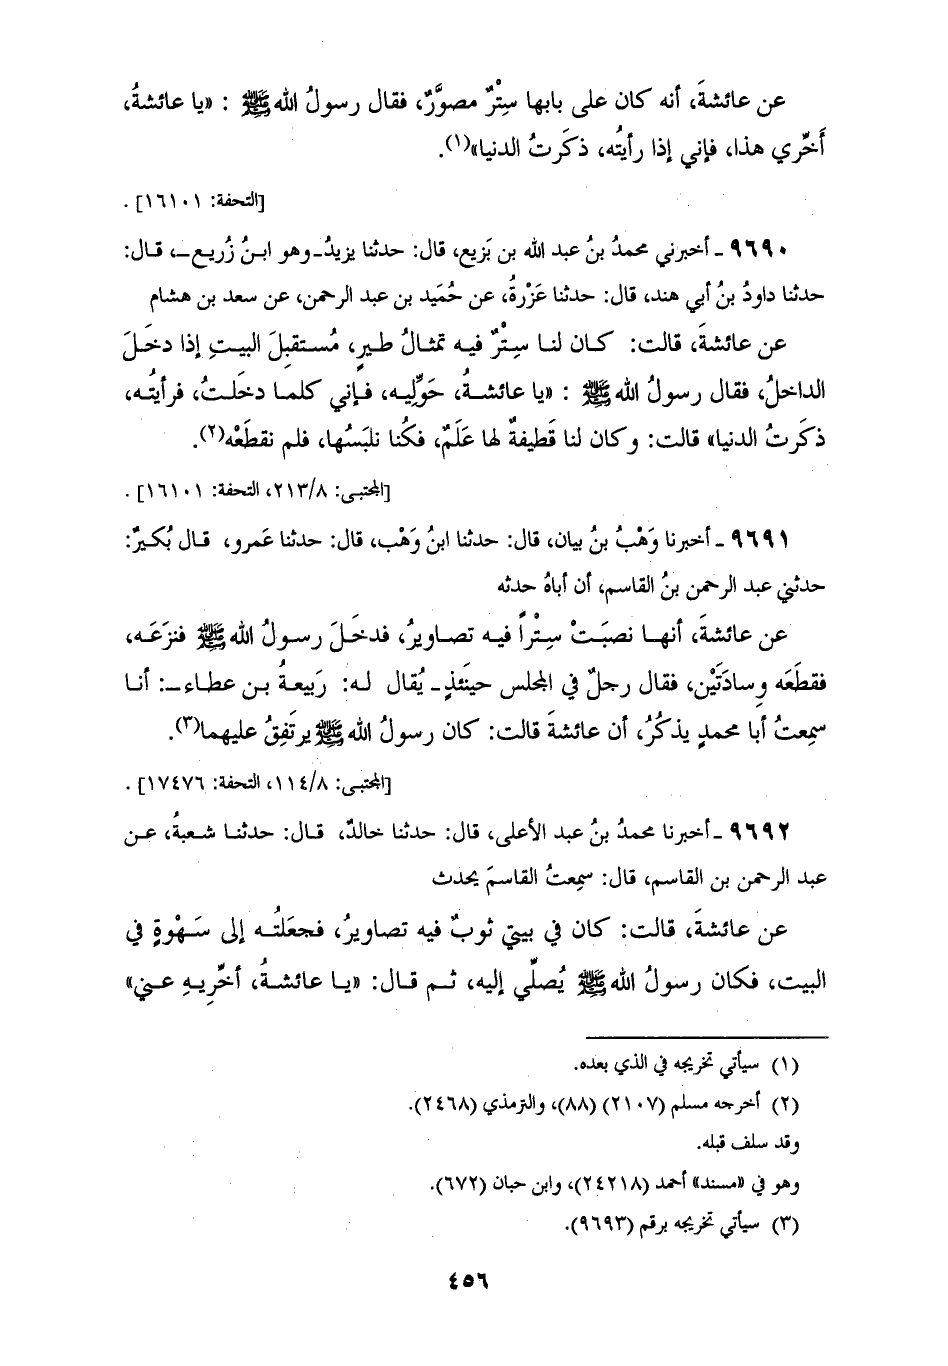 عن عائشةَ، أنه كان على بابها سِتْرٌ مصوَّرٌ، فقال رسولُ الله ﷺ : «يا عائشةُ،
أَخِّري هذا، فإني إذا رأيتُه، ذكَرتُ الدنيا»(١).
[التحفة: ١٦١٠١] .
٩٦٩٠ ـ أخبرني محمدُ بنُ عبد الله بن بَزيع، قال: حدثنا يزيدُ ـ وهو ابنُ زُريع ـ، قال:
حدثنا داودُ بنُ أبي هند، قال: حدثنا عَزْرةُ، عن حُمَيد بن عبد الرحمن، عن سعد بن هشام
عن عائشةَ، قالت: كان لنا سِتْرٌ فيه تمثالُ طيرٍ، مُستقبِلَ البيتِ إذا دخَلَ
الداخلُ، فقال رسولُ الله ﷺ : «يا عائشةُ، حَوِّليه، فإني كلما دخلتُ، فرأيتُه،
ذكَرتُ الدنيا» قالت: وكان لنا قَطيفةٌ لها عَلَمٌ، فكُنا نلبَسُها، فلم نقطَعْه(٢).
[المجتبى: ٢١٣/٨، التحفة: ١٦١٠١] .
٩٦٩١ ـ أخبرنا وَهْبُ بنُ بيان، قال: حدثنا ابنُ وَهْب، قال: حدثنا عَمرو، قال بُكيرٌ:
حدثني عبد الرحمن بنُ القاسم، أن أباهُ حدثه
عن عائشةَ، أنها نصبَتْ سِتْراً فيه تصاويرُ، فدخَلَ رسولُ الله ﷺ فنزَعَه،
فقطَعَه وِسادَتَيْن، فقال رجلٌ في المجلس حينَئذٍ ـ يُقال له: رَبيعةُ بن عطاء ـ: أنا
سمِعتُ أبا محمدٍ يذكُرُ، أن عائشةَ قالت: كان رسولُ الله ﷺ يرتَفِقُ عليهما(٣).
[المجتبى: ١١٤/٨، التحفة: ١٧٤٧٦] .
٩٦٩٢ ـ أخبرنا محمدُ بنُ عبد الأعلى، قال: حدثنا خالدٌ، قال: حدثنا شعبةُ، عن
عبد الرحمن بن القاسم، قال: سمِعتُ القاسمَ يحدث
عن عائشةَ، قالت: كان في بيتي ثوبٌ فيه تصاويرُ، فجعَلتُه إلى سَهْوةٍ في
البيت، فكان رسولُ الله ﷺ يُصلِّي إليه، ثم قال: «يا عائشةُ، أخِّريهِ عني»
(١) سيأتي تخريجه في الذي بعده.
(٢) أخرجه مسلم (٢١٠٧) (٨٨)، والترمذي (٢٤٦٨).
وقد سلف قبله.
وهو في «مسند» أحمد (٢٤٢١٨)، وابن حبان (٦٧٢).
(٣) سيأتي تخريجه برقم (٩٦٩٣).
٤٥٦